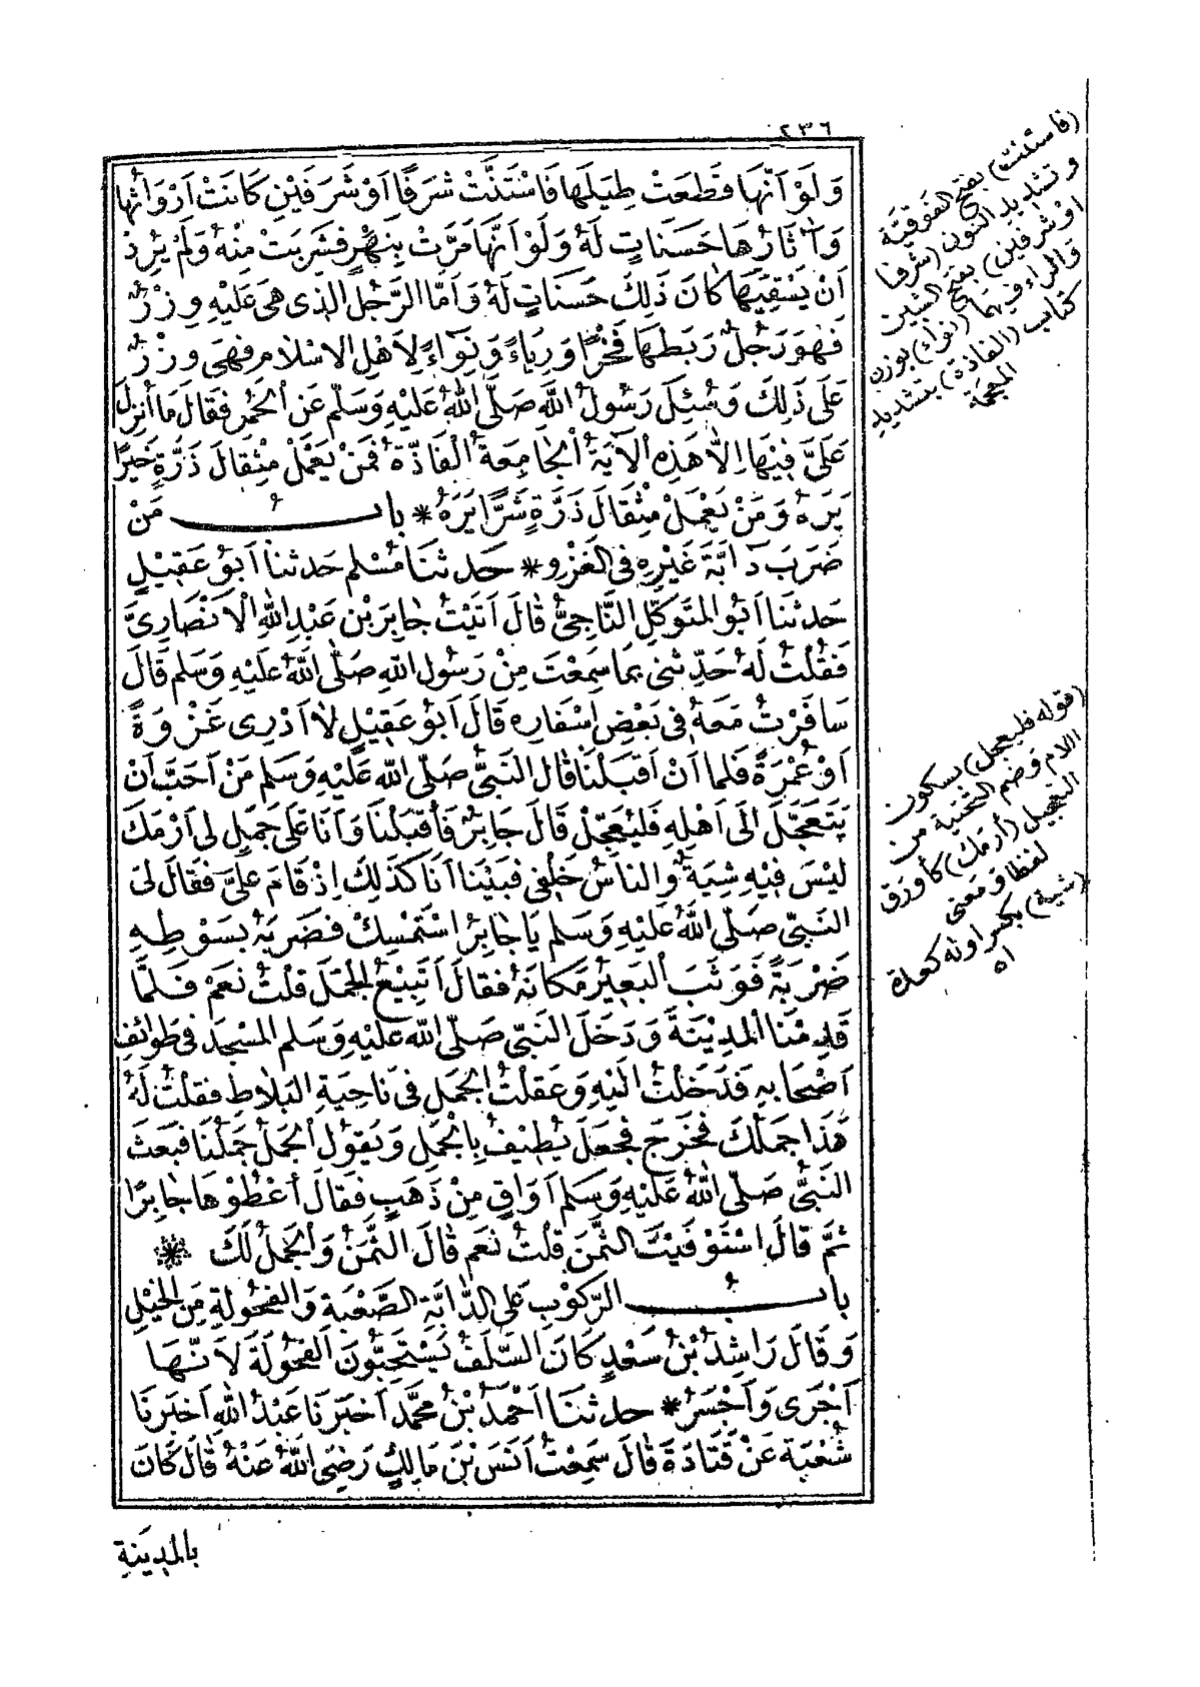 ٢٣٦
وَلَوْ اَنَّهَا قَطَعَتْ طِيَلَهَا فَاسْتَنَّتْ شَرَفًا اَوْ شَرَفَيْنِ كَانَتْ اَرْوَاثُهَا
وَآثَارُهَا حَسَنَاتٍ لَهُ وَلَوْ اَنَّهَا مَرَّتْ بِنَهَرٍ فَشَرِبَتْ مِنْهُ وَلَمْ يُرِدْ
اَنْ يَسْقِيَهَا كَانَ ذَلِكَ حَسَنَاتٍ لَهُ وَاَمَّا الرَّجُلُ الذِى هِىَ عَلَيْهِ وِزْرٌ
فَهُوَ رَجُلٌ رَبَطَهَا فَخْرًا وَرِيَاءً وَنِوَاءً لِاَهْلِ الاِسْلَامِ فَهِىَ وِزْرٌ
عَلَى ذَلِكَ وَسُئِلَ رَسُولُ اللّٰهِ صَلَّى اللّٰهُ عَلَيْهِ وَسَلَّمَ عَنِ الْحُمُرِ فَقَالَ مَا أُنْزِلَ
عَلَىَّ فِيهَا اِلَّا هَذِهِ الْآيَةُ الْجَامِعَةُ الْفَاذَّةُ فَمَنْ يَعْمَلْ مِثْقَالَ ذَرَّةٍ خَيْرًا
يَرَهُ وَمَنْ يَعْمَلْ مِثْقَالَ ذَرَّةٍ شَرًّا يَرَهُ * بابٌ مَنْ
ضَرَبَ دَابَّةَ غَيْرِهِ فِى الغَزْوِ * حَدثنَا مُسْلِم حَدثنَا اَبُو عَقِيْلٍ
حَدثنَا اَبُو المُتَوَكِّلِ النَّاجِىُّ قَالَ اَتَيْتُ جَابِرَ بْنَ عَبْدِ اللّٰهِ الْاَنْصَارِىَّ
فَقُلْتُ لَهُ حَدِّثْنِى بِمَا سَمِعْتَ مِنْ رَسُولِ اللّٰهِ صَلَّى اللّٰهُ عَلَيْهِ وَسَلم قَالَ
سَافَرْتُ مَعَهُ فِى بَعْضِ اَسْفَارِهِ قَالَ اَبُو عَقِيْلٍ لَا اَدْرِى غَزْوَةً
اَوْ عُمْرَةً فَلما اَنْ اَقْبَلْنَا قَالَ النَّبىُّ صَلَّى اللّٰه عَلَيْهِ وَسَلم مَنْ اَحَبَّ اَنْ
يَتَعَجَّلَ اِلَى اَهْلِهِ فَلْيُعَجِّلْ قَالَ جَابِرٌ فَأَقْبَلْنَا وَاَنَا عَلَى جَمَلٍ لِى اَرْمَكَ
لَيْسَ فِيْهِ شِيَةٌ وَالنَاسُ خَلْفِى فَبَيْنَا اَنَا كَذَلِكَ اِذْ قَامَ عَلَىَّ فَقَالَ لِىَ
النَبِىّ صَلَّى اللّٰهُ عَلَيْهِ وَسَلم يَا جَابِرُ اسْتَمْسِكْ فَضَرَبَهُ بِسَوْطِهِ
ضَرْبَةً فَوَثَبَ الْبَعِيْرُ مَكَانَهُ فَقَالَ اَتَبِيْعُ الْجَمَلَ قُلْتُ نَعَمْ فَلَمَّا
قَدِمْنَا الْمَدِيْنَةَ وَدَخَلَ النَبِىّ صَلَّى اللّٰه عَلَيْهِ وَسَلم المَسْجِدَ فِى طَوَائِفِ
اَصْحَابِهِ فَدَخَلْتُ اِلَيْهِ وَعَقَلْتُ الْجَمَلَ فِى نَاحِيَةِ البَلَاطِ فَقُلْتُ لَهُ
هَذَا جَمَلُكَ فَخَرَجَ فَجَعَلَ يُطِيْفُ بِالْجَمَلِ وَيَقُولُ الْجَمَلُ جَمَلُنَا فَبَعَثَ
النَبِىُّ صَلَّى اللّٰهُ عَلَيْهِ وَسَلم اَوَاقٍ مِنْ ذَهَبٍ فَقَالَ أَعْطُوْهَا جَابِرًا
ثُمَّ قَالَ اسْتَوْفَيْتَ الثَّمَنَ قُلْتُ نَعَم قَالَ الثَّمَنُ وَالْجَمَلُ لَكَ *
بابٌ الرّكُوْبِ عَلَى الدَّابَّةِ الصَّعْبَةِ وَالفُحُولَةِ مِنَ الخَيْلِ
وَقَالَ رَاشِدُ بْنُ سَعْدٍ كَانَ السَّلَفُ يَسْتَحِبُّونَ الفُحُولَةَ لَاَنَّهَا
اَجْرَى وَاَجْسَرُ * حدثنَا اَحْمَدُ بْنُ مُحَمَّدٍ اَخبَرَنَا عَبْدُ اللّٰهِ اَخبَرَنَا
شُعْبَة عَنْ قَتَادَةَ قَالَ سَمِعْتُ اَنَسَ بْنَ مَالِكٍ رَضِىَ اللّٰهُ عَنْهُ قَالَ كَانَ
بِالمَدِيْنَةِ
(فاستنت) بفتح الفوقيّة
وتشديد النون (شرفا
او شرفين) بفتح الشين
والراء فيهما (نواء) بوزن
كتاب (الفاذة) بتشديد
المعجمة
(قوله فليعجل) بسكون
اللام وضم التحتية من
التعجيل (أرمك) كأورق
لفظا ومعنى
(شية) بكسر اوله كعدة
اه